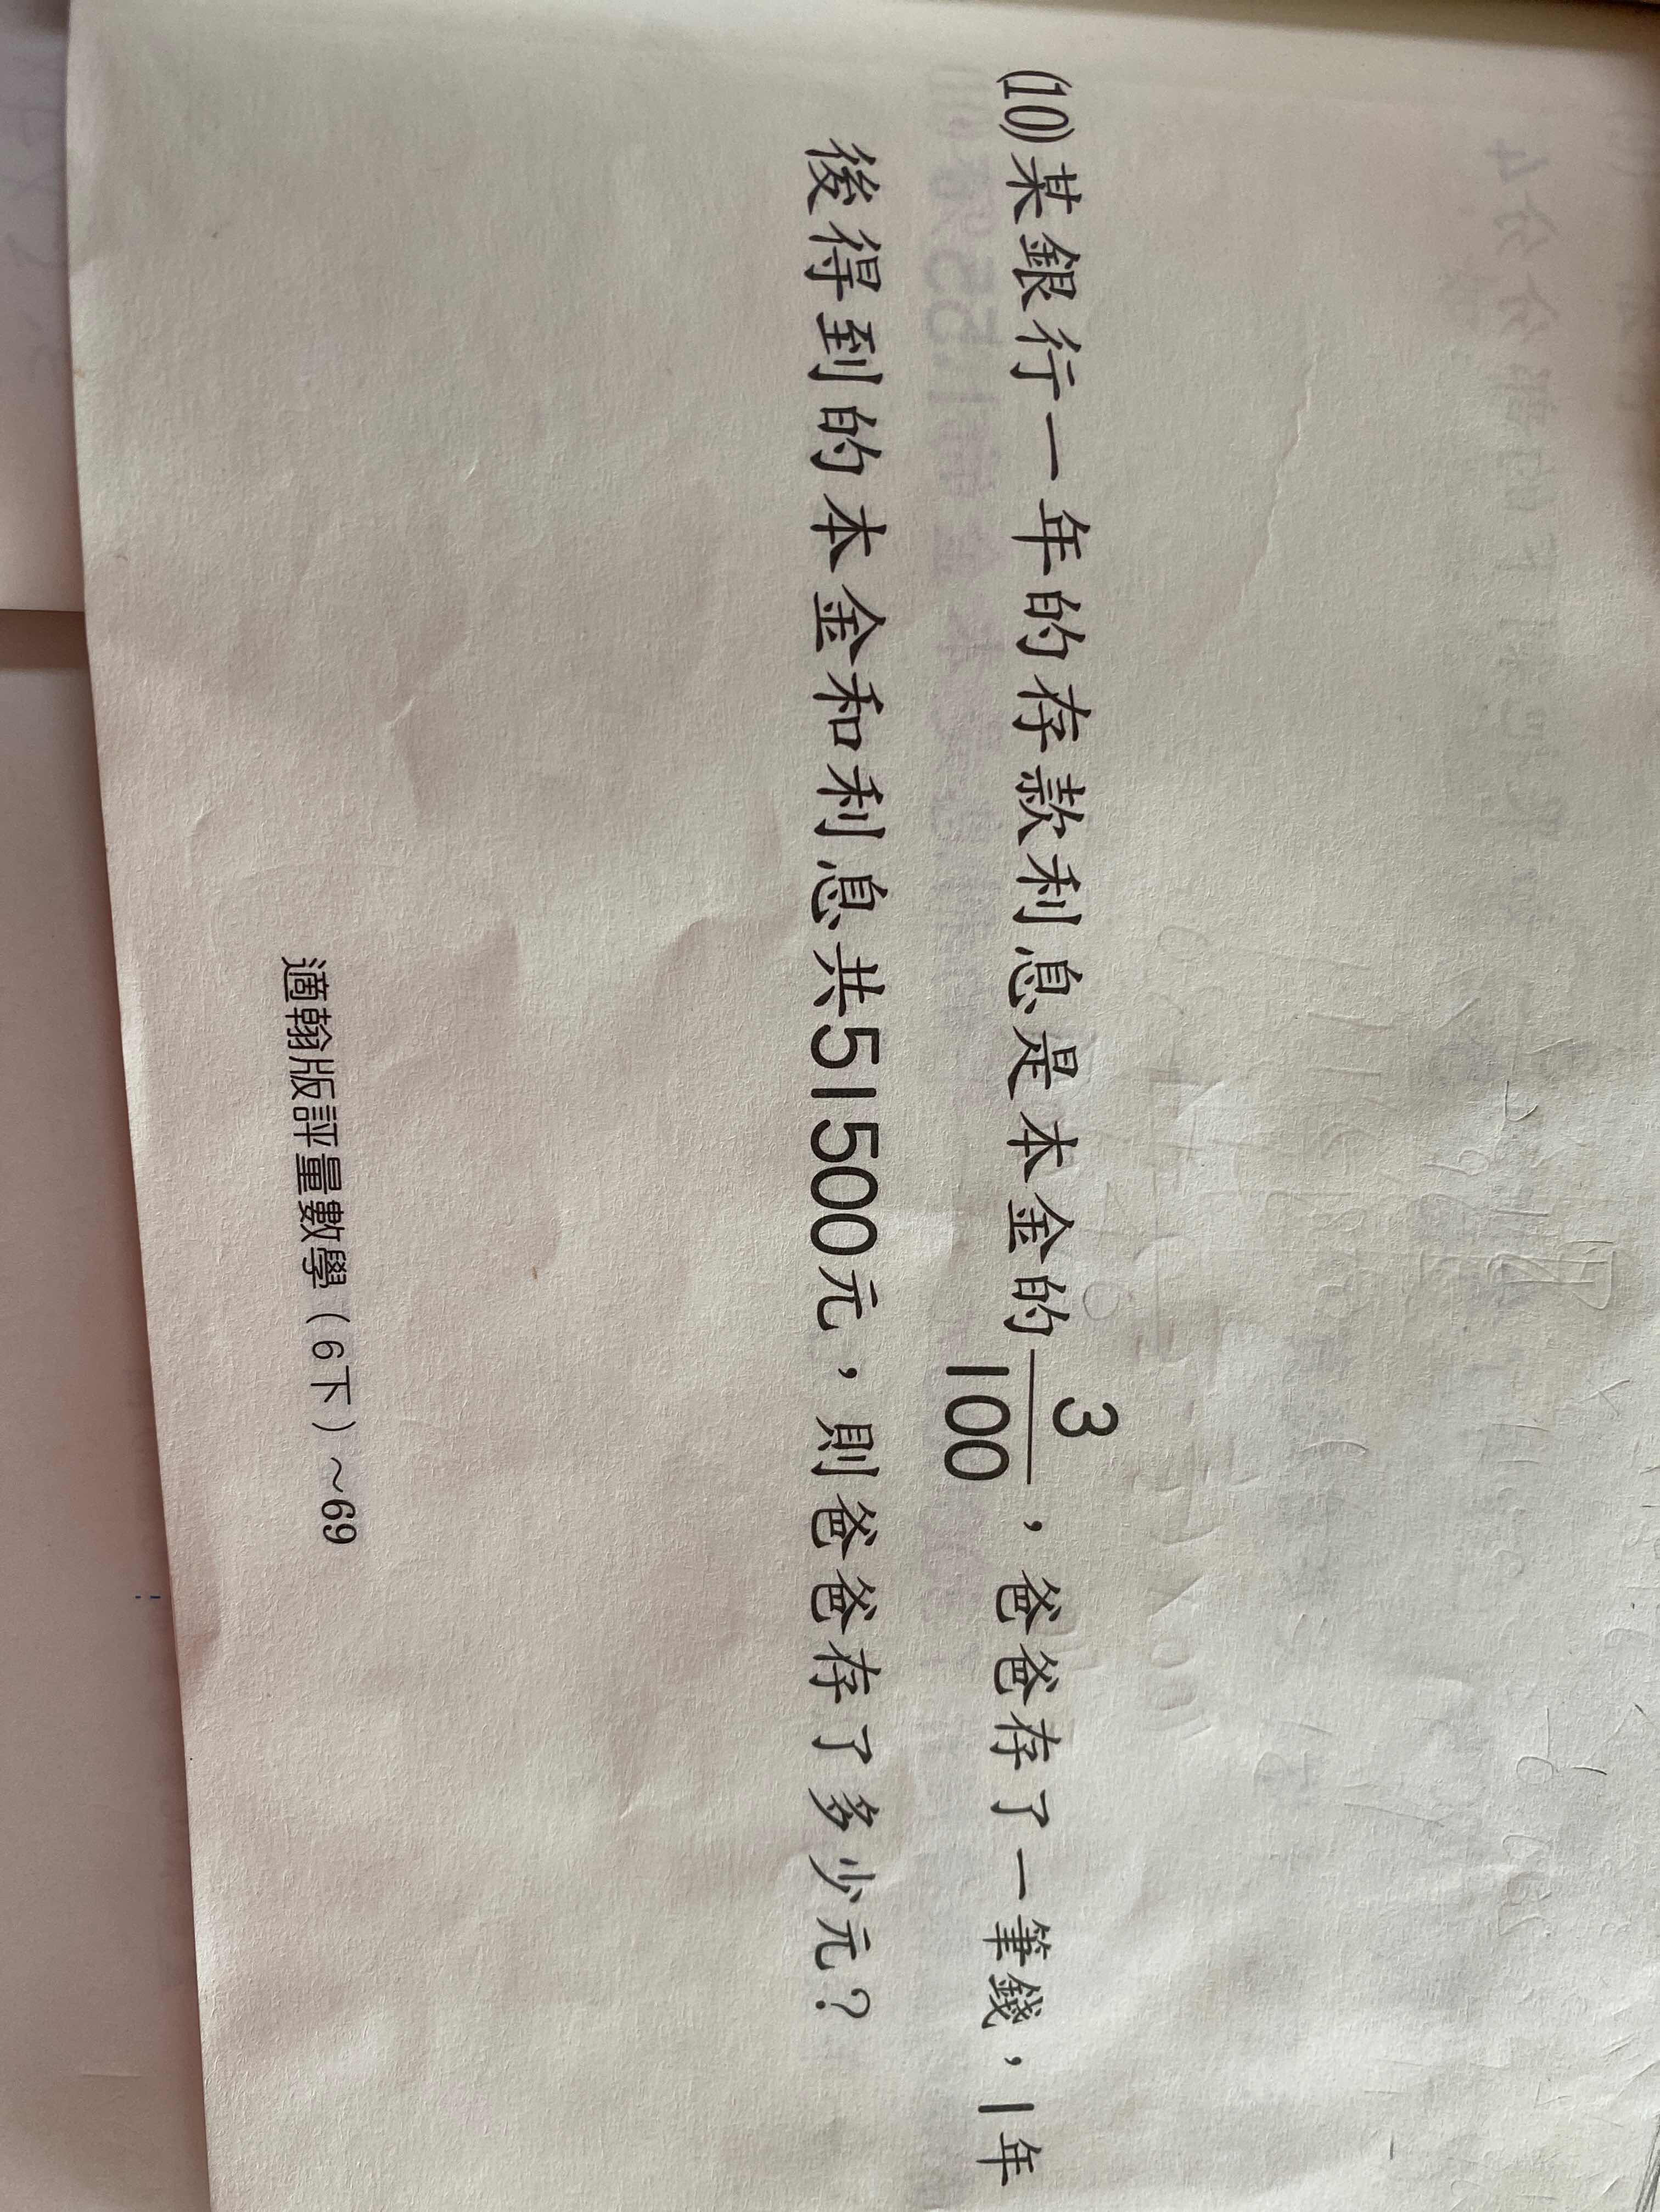 (10)某銀行一年的存款利息是本金的3/100，爸爸存了一筆錢，1年
後得到的本金和利息共51500元，則爸爸存了多少元？
適翰版評量數學（6下）～69